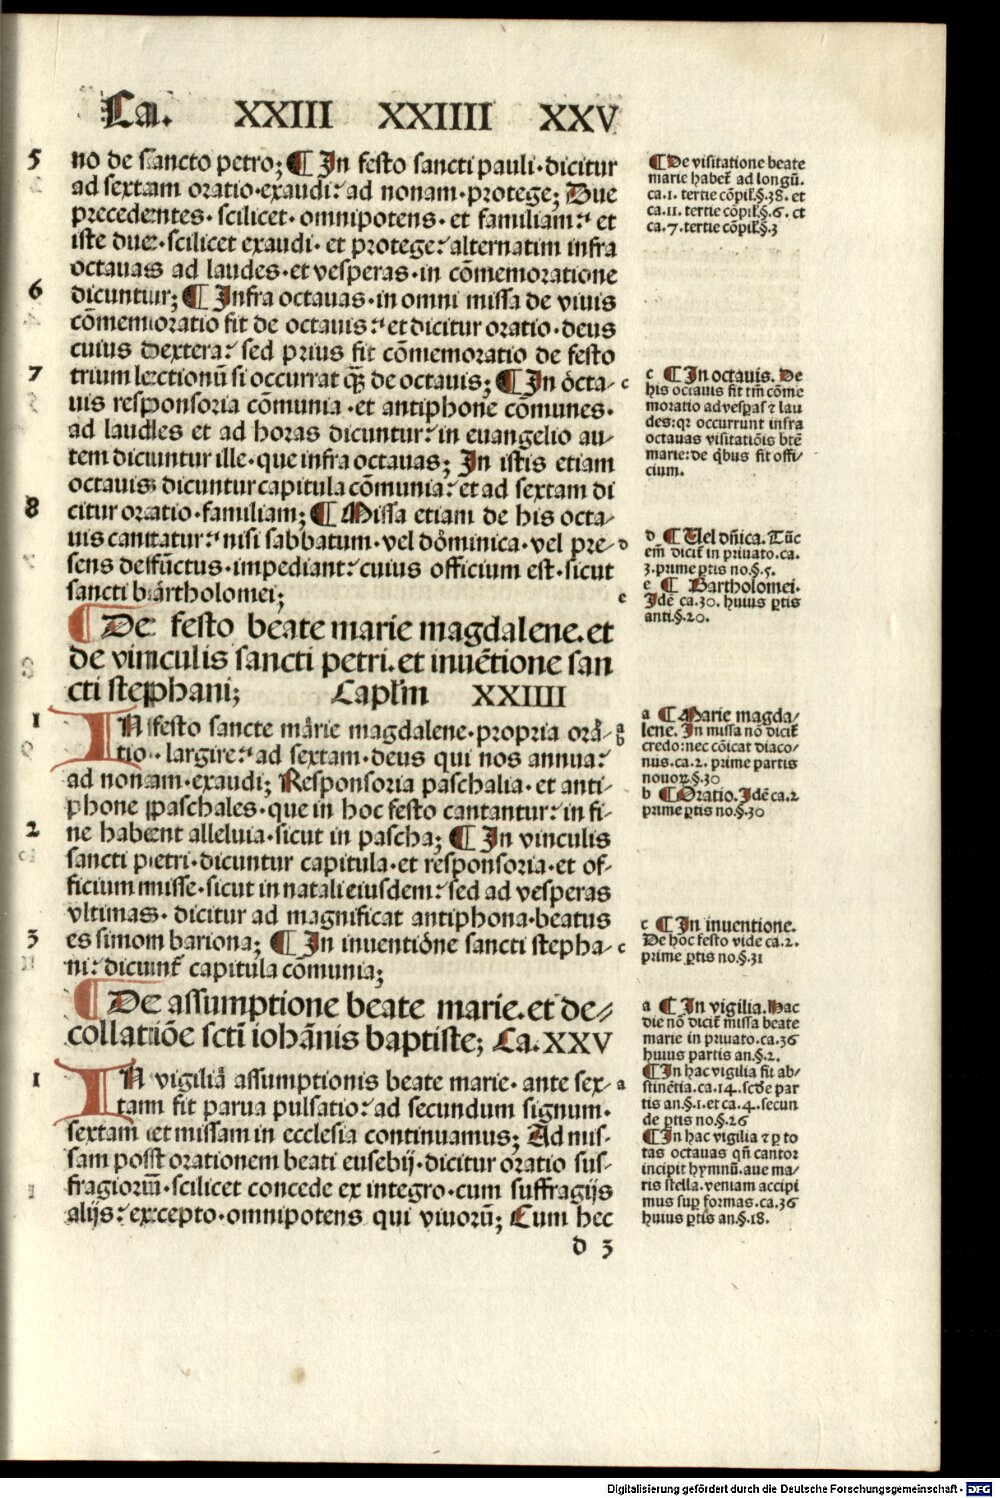 Ca. XXIII XXIIII XXV
5 no de sancto petro; ¶ In festo sancti pauli·dicitur
ad sextam oratio·exaudi:ad nonam·protege; Due
precedentes·scilicet·omnipotens·et familiam:et
iste due·scilicet exaudi·et protege:alternatim infra
octauas ad laudes·et vesperas·in cōmemoratione
6 dicuntur; ¶ Infra octauas·in omni missa de viuis
cōmemoratio fit de octauis:et dicitur oratio·deus
cuius dextera:sed prius fit cōmemoratio de festo
7 trium lectionū si occurrat q̄ de octauis; ¶ In octa- c
uis responsoria cōmunia·et antiphone cōmunes·
ad laudes et ad horas dicuntur:in euangelio au-
tem dicuntur ille·que infra octauas; In istis etiam
octauis dicuntur capitula cōmunia:et ad sextam di
8 citur oratio·familiam; ¶ Missa etiam de his octa-
uis cantatur:nisi sabbatum·vel dominica·vel pre- d
sens defūctus·impediant:cuius officium est·sicut
sancti bartholomei; e
¶ De festo beate marie magdalene.et
de vinculis sancti petri.et inuētione san
cti stephani; Caplm XXIIII
1 IN festo sancte marie magdalene·propria ora- a b
tio·largire:ad sextam·deus qui nos annua:
ad nonam·exaudi; Responsoria paschalia·et anti-
phone paschales·que in hoc festo cantantur:in fi-
2 ne habent alleluia·sicut in pascha; ¶ In vinculis
sancti petri·dicuntur capitula·et responsoria·et of-
ficium misse·sicut in natali eiusdem:sed ad vesperas
vltimas·dicitur ad magnificat antiphona·beatus
3 es simon bariona; ¶ In inuentione sancti stepha- c
ni:dicunt̄ capitula cōmunia;
¶ De assumptione beate marie.et de-
collatiōe scti iohānis baptiste; Ca.XXV
1 IN vigiliā assumptionis beate marie·ante sex- a
tam fit parua pulsatio:ad secundum signum·
sextam et missam in ecclesia continuamus; Ad mis-
sam post orationem beati eusebij·dicitur oratio suf-
fragiorū·scilicet concede ex integro·cum suffragijs
alijs:excepto·omnipotens qui viuorū; Cum hec
d 3
¶ De visitatione beate
marie habet̄ ad longū.
ca.1. tertie cōpil.§.38. et
ca.11. tertie cōpil.§.6. et
ca.7.tertie cōpil.§.3
c ¶ In octauis. De
his octauis fit tm̄ cōme
moratio ad vesp̄as ⁊ lau
des:qr occurrunt infra
octauas visitatiōis btē
marie:de q̄bus fit offi-
cium.
d ¶ Uel dn̄ica. Tūc
em̄ dicit̄ in priuato.ca.
3.prime p̄tis no.§.5.
e ¶ Bartholomei.
Idē ca.30. huius p̄tis
anti.§.20.
a ¶ Marie magda-
lene. In missa nō dicit̄
credo:nec cōicat diaco-
nus.ca.2. prime partis
nouoꝝ.§.30
b ¶ Oratio. Idē ca.2
prime p̄tis no.§.30
c ¶ In inuentione.
De hoc festo vide ca.2.
prime p̄tis no.§.31
a ¶ In vigilia. Hac
die nō dicit̄ missa beate
marie in priuato.ca.36
huius partis an.§.2.
¶ In hac vigilia fit ab-
stinētia.ca.14.scd̄e par
tis an.§.1.et ca.4.secun
de p̄tis no.§.26
¶ In hac vigilia ⁊ p̄ to
tas octauas qn̄ cantor
incipit hymnū.aue ma-
ris stella.veniam accipi
mus sup̄ formas.ca.36
huius p̄tis an.§.18.
Digitalisierung gefördert durch die Deutsche Forschungsgemeinschaft - DFG